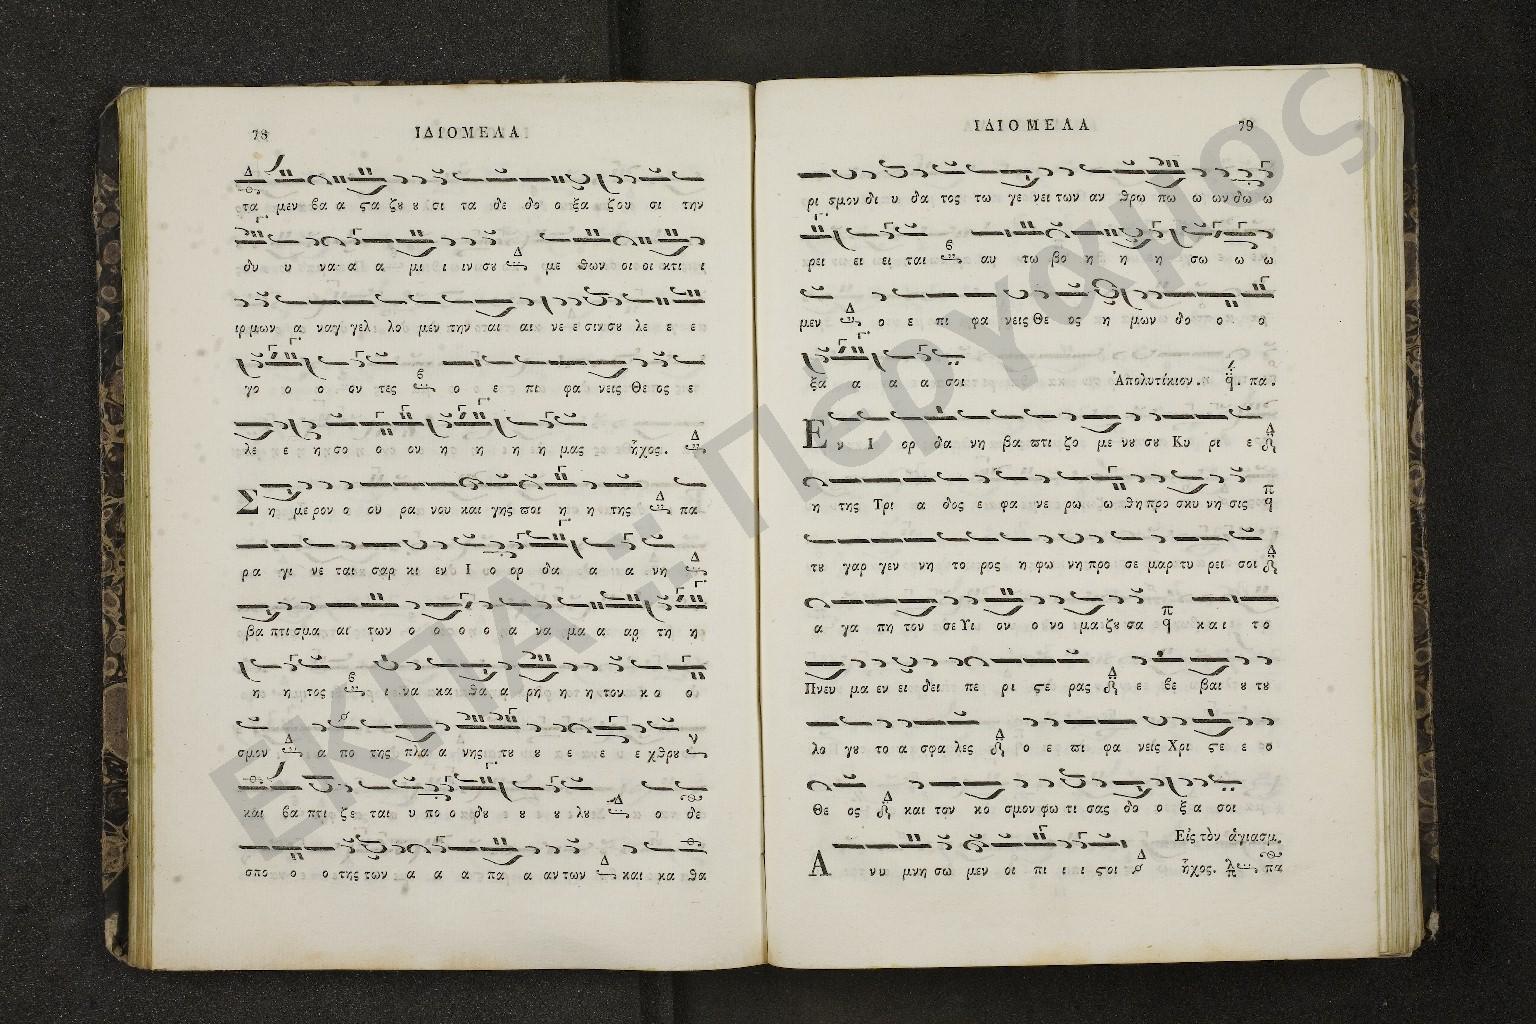 78 ΙΔΙΟΜΕΛΑ
τα μεν βα α ϛα ζου ου σι τα δε δο ο ξα ζου σι την
δυ υ να α α μι ι ιν σου με θων οι οι κτι ι
ιρ μων α ναγ γελ λο μεν την αι αι νε ε σιν σου λε ε ε
γο ο ο ον τες ο ε πι φα νεις Θε ος ε
λε ε η σο ο ον η η η η μας ἦχος.
Σ η με ρον ο ου ρα νου και γης ϖοι η η της πα
ρα γι νε ται σαρ κι εν Ι ο ορ δα α α νη
βα πτι σμα αι των ο ο ο ο α να μα α αρ τη η
η η τος ι να κα θα α ρη η η τον κο ο
σμον α πο της πλα α νης του ου ε ε ε ε χθρου
και βα πτι ζε ται υ πο ο δου ου ου ου λου ο δε
σπο ο ο της των α α α πα α αν των και κα θα
ΙΔΙΟΜΕΛΑ 79
ρι σμον δι υ δα τος τω γε νει των αν θρω πω ω ων δω ω
ρει ει ει ται αυ τω βο η η η σω ω ω
μεν ο ε πι φα νεις Θε ος η μων δο ο ο
ξα α α α σοι Ἀπολυτίκιον. q̈. πα.
Ε ν Ι ορ δα νη βα ϖτι ζο με νου σου Κυ ρι ε
η της Τρι α δος ε φα νε ρω ω θη προ σκυ νη σις
του γαρ γεν νη το ρος η φω νη προ σε μαρ τυ ρει σοι
α γα πη τον σε Υι ον ο νο μα ζου σα και το
Πνευ μα εν ει δει πε ρι ϛε ρας ε βε βαι ου του
λο γου το α σφα λες ο ε ϖι φα νεις Χρι ϛε ε ο
Θε ος και τον κο σμον φω τι σας δο ο ξα σοι
Εἰς τὸν ἁγιασμ.
Α νυ μνη σω μεν οι πι ι ι ϛοι ἦχος. πα
ΕΚΠΑ :: Πέργαμος